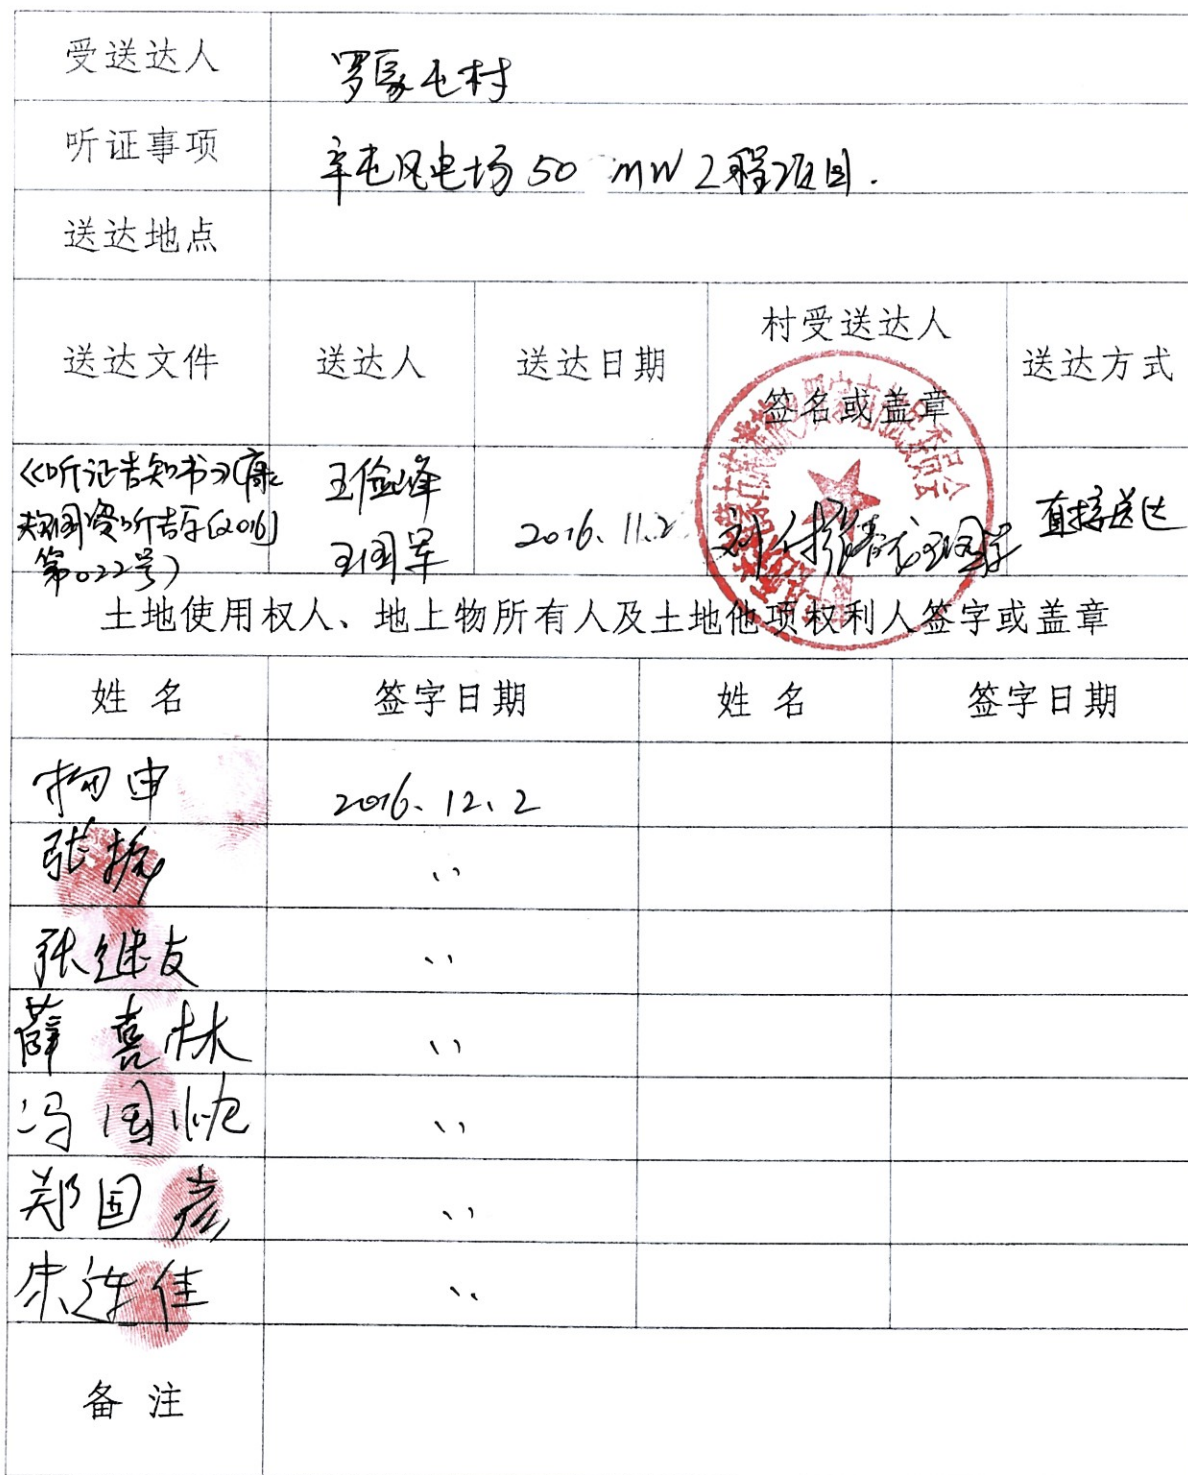 受送达人 罗家屯村
听证事项 辛屯风电场50 MW工程项目.
送达地点
送达文件 送达人 送达日期 村受送达人 签名或盖章 送达方式
《听证告知书》(康
国资听告字[2016]
第022号)
王俭峰
王国军
2016.11.2
直接送达
土地使用权人、地上物所有人及土地他项权利人签字或盖章
姓 名 签字日期 姓 名 签字日期
杨申 2016.12.2
张 〃
张继友 〃
薛喜林 〃
冯国 〃
郑国彦 〃
宋连佳 〃
备 注